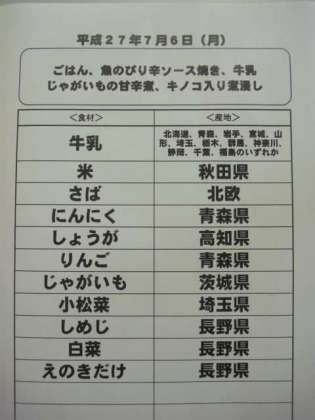 平成27年7月6日（月）
ごはん、魚のぴり辛ソース焼き、牛乳
じゃがいもの甘辛煮、キノコ入り煮浸し
＜食材＞ ＜産地＞
牛乳 北海道、青森、岩手、宮城、山
形、埼玉、栃木、群馬、神奈川、
静岡、千葉、福島のいずれか
米 秋田県
さば 北欧
にんにく 青森県
しょうが 高知県
りんご 青森県
じゃがいも 茨城県
小松菜 埼玉県
しめじ 長野県
白菜 長野県
えのきだけ 長野県